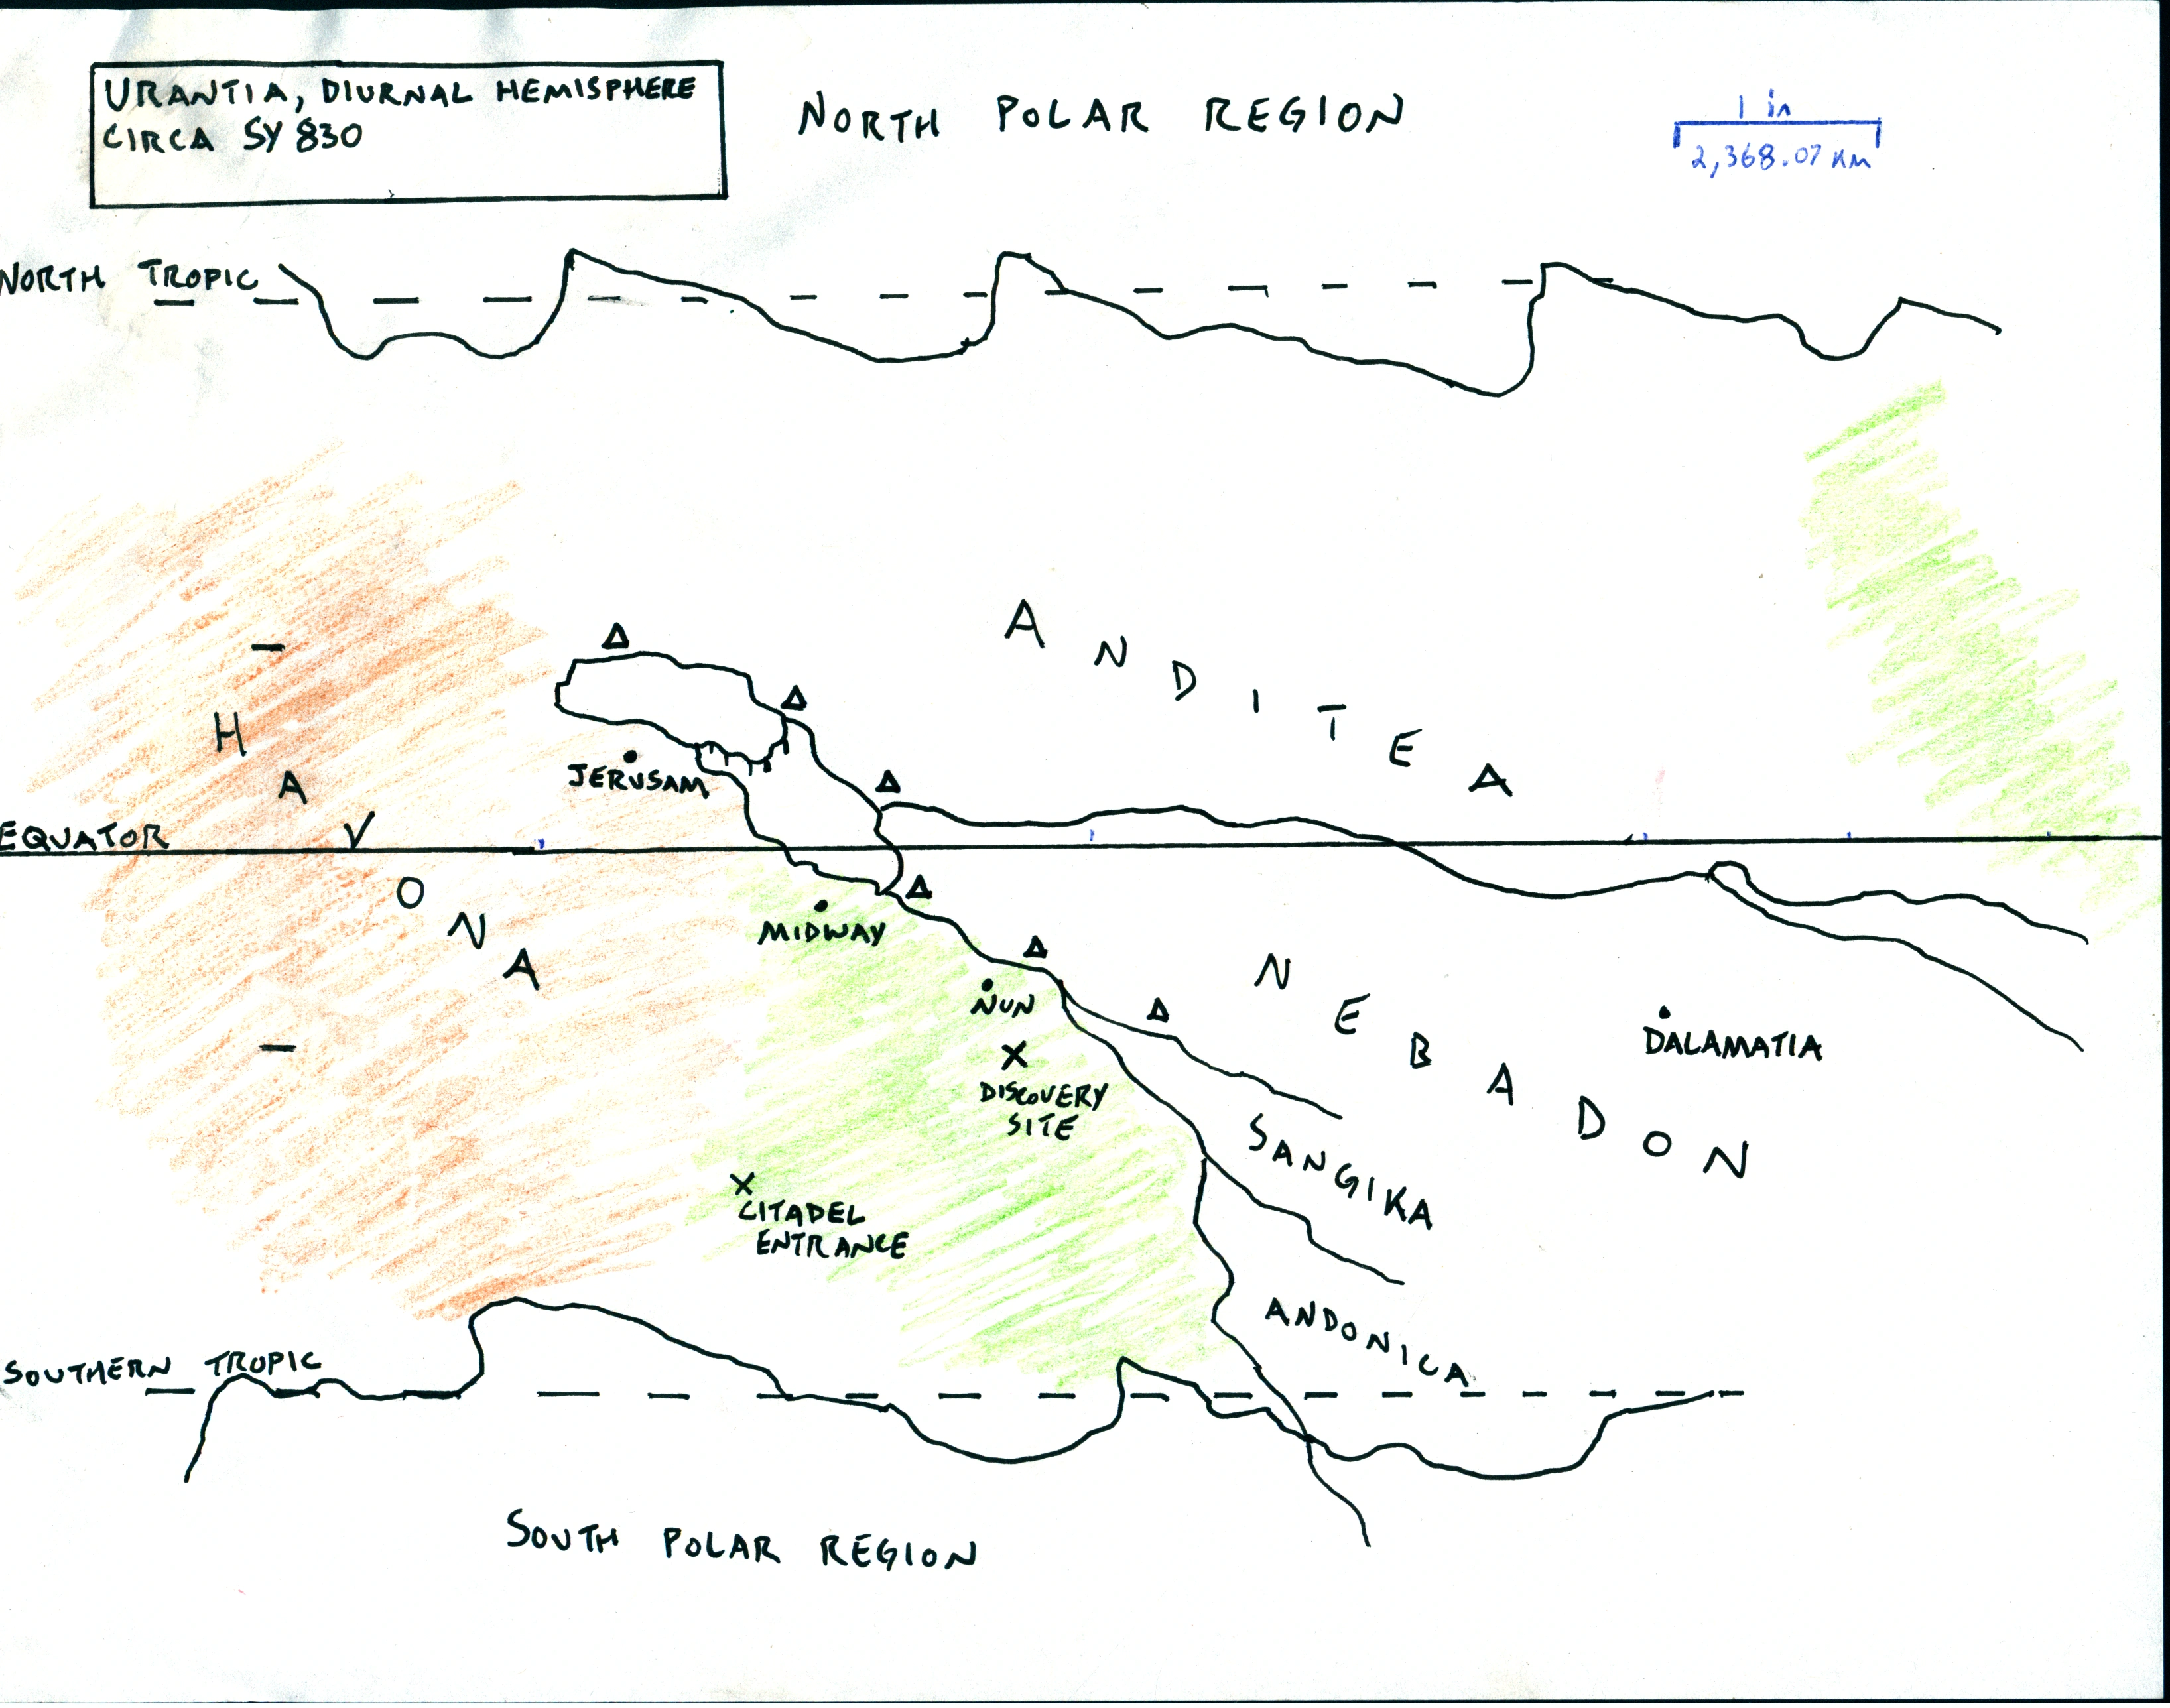 URANTIA, DIURNAL HEMISPHERE
CIRCA SY 830
NORTH POLAR REGION
1 in
2,368.07 KM
NORTH TROPIC
ANDITEA
HAVONA
JERUSAM
EQUATOR
MIDWAY
NUN
NEBADON
DALAMATIA
DISCOVERY
SITE
SANGIKA
CITADEL
ENTRANCE
ANDONICA
SOUTHERN TROPIC
SOUTH POLAR REGION